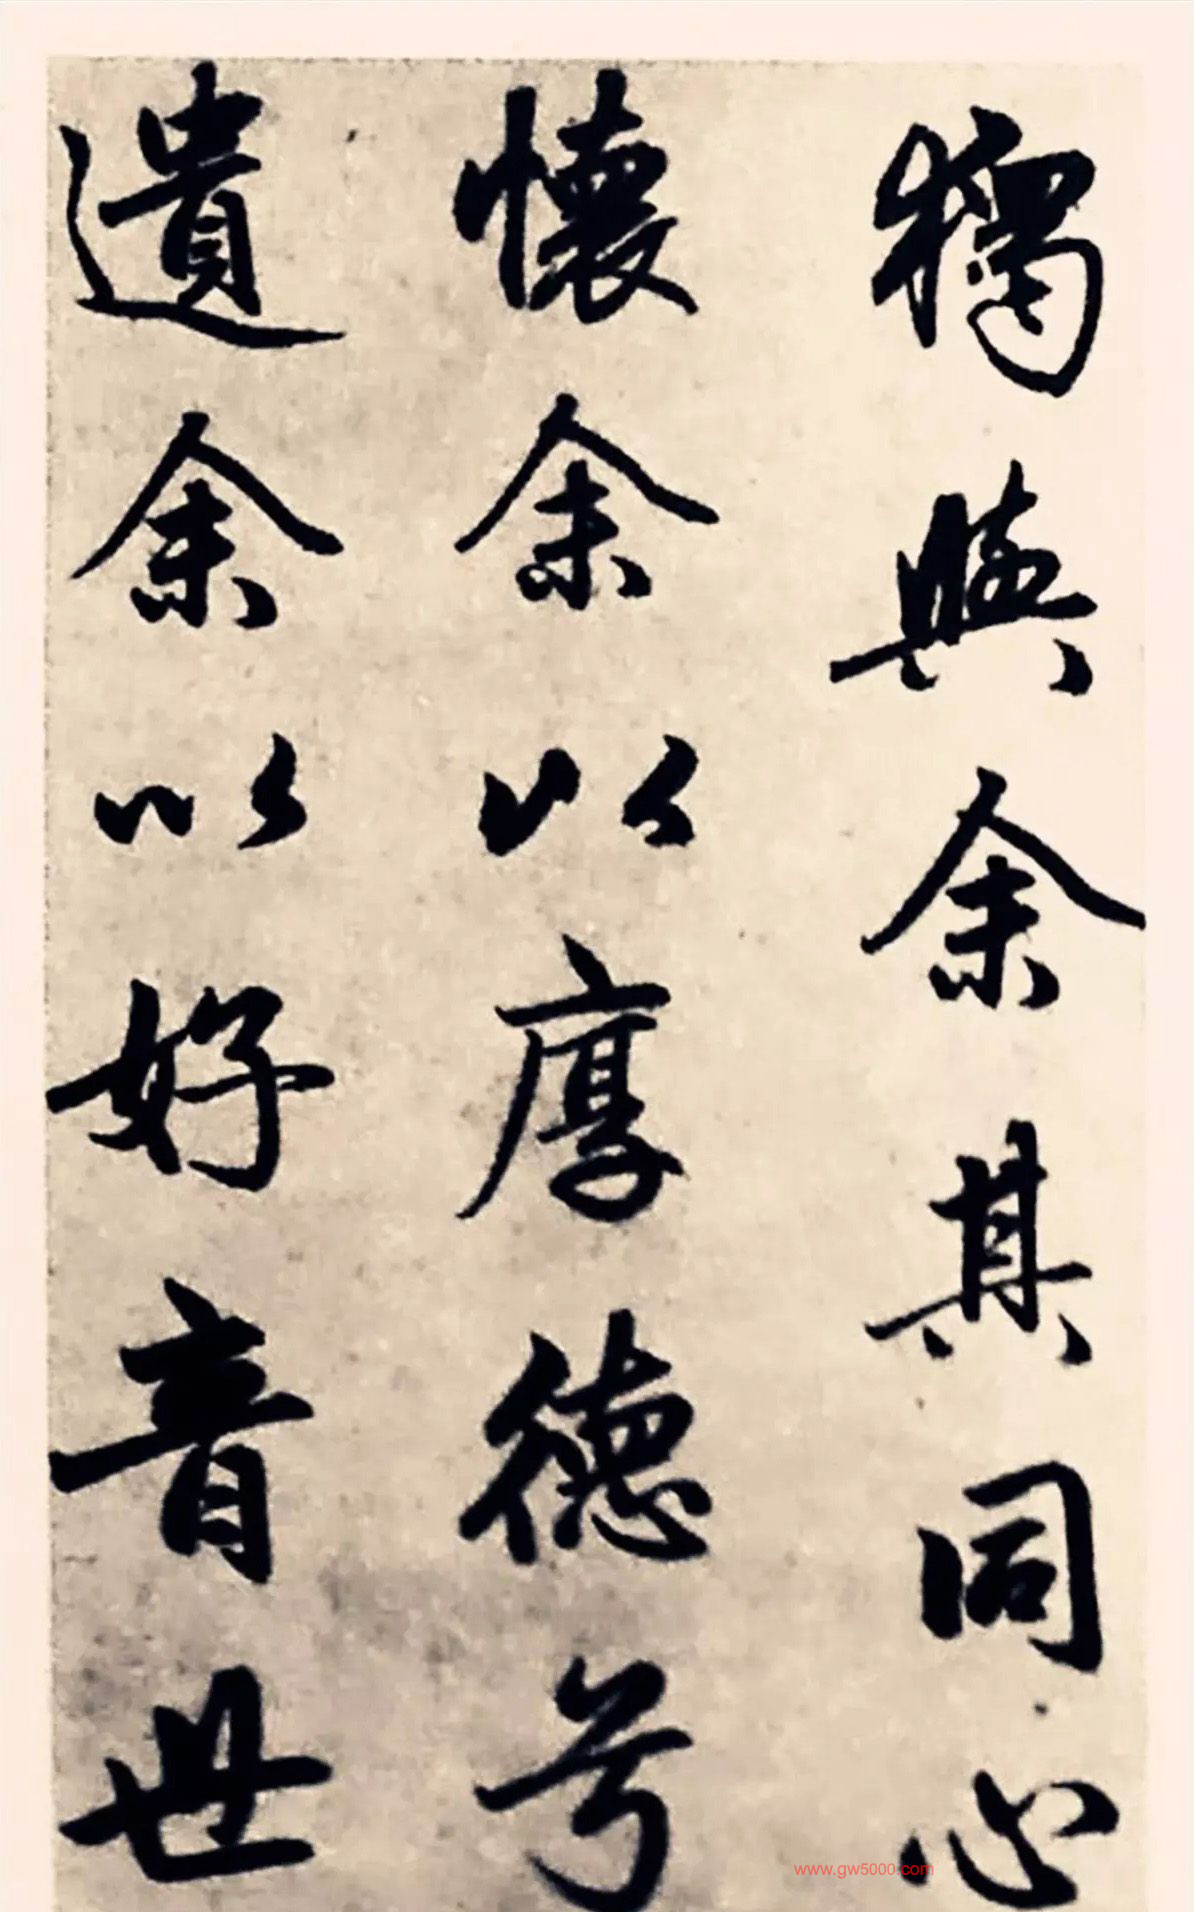 獨與余其同心
懷余以厚德兮
遺余以好音世
www.gw5000.com